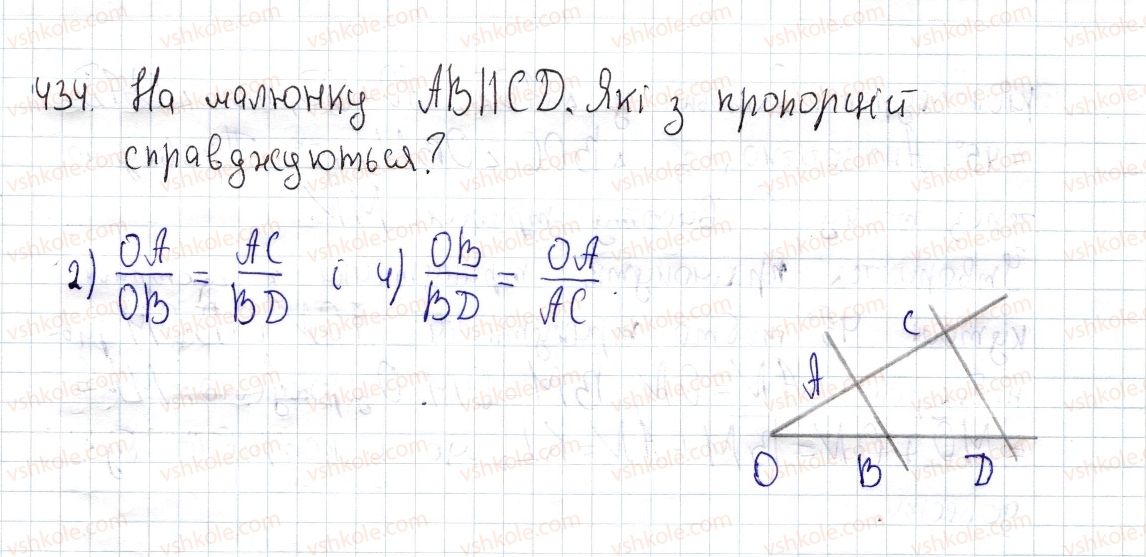 434. На малюнку AB||CD. Які з пропорцій
справджуються?
2) OA/OB = AC/BD і 4) OB/BD = OA/AC.
C
A
O B D